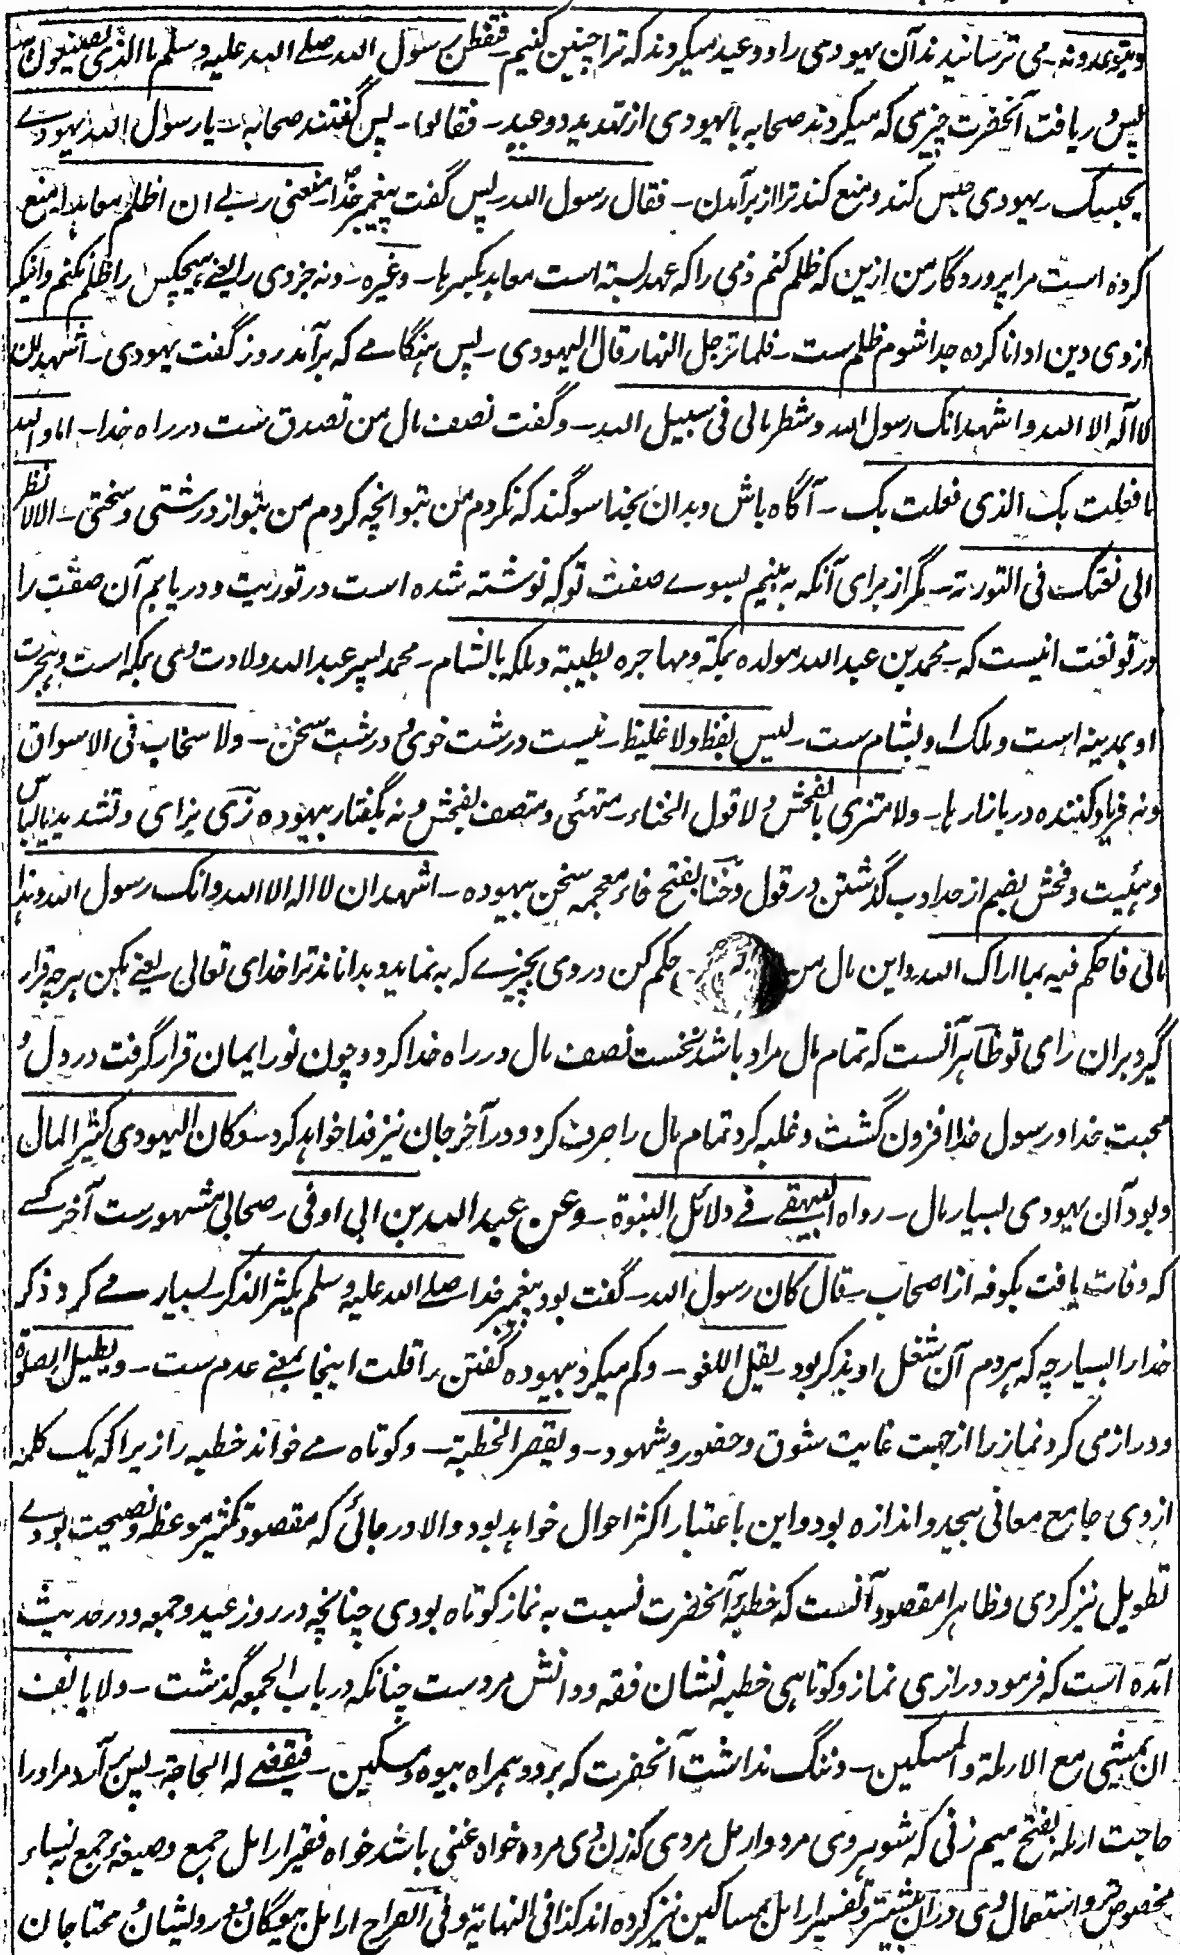 ویتوعدونه - می ترسانیدند آن یهودی را و وعید میکردند که ترا چنین کنیم - ففطن رسول الله صلے الله علیه وسلم ما الذی یصنعون به
پس دریافت آنحضرت چیزی که میکردند صحابه با یهودی از تهدید و وعید - فقالوا - پس گفتند صحابه - یا رسول الله یهودے
یحبسک - یهودی حبس کند و منع کند ترا از برآمدن - فقال رسول الله - پس گفت پیغمبر خدا - منعنی ربے ان اظلم معاهدا - منع
کرده است مرا پروردگار من ازین که ظلم کنم ذمی را که عهد بسته است معاهد بکسر ها - وغیره - و نه جز وی را یعنے هیچکس را ظلم نکنم و اینکه
از وی دین او ادا نا کرده جدا شوم ظلم ست - فلما ترجل النهار قال الیهودی - پس هنگامے که برآمد روز گفت یهودی - اشهد ان
لا اله الا الله و اشهد انک رسول الله و شطر مالی فی سبیل الله - و گفت نصف مال من تصدق ست در راه خدا - اما و الله
ما فعلت بک الذی فعلت بک - آگاه باش و بدان بخدا سوگند که نکردم من بتو آنچه کردم من بتو از درشتی و سختی - الا لانظر
الی نعتک فی التورته - مگر از برای آنکه به بینم بسوے صفت تو که نوشته شده است در توریت و دریابم آن صفت را
در تو نعت اینست که - محمد بن عبد الله مولده بمکة و مهاجره بطیبة و ملکه بالشام - محمد پسر عبد الله ولادت وی بمکه است و هجرت
او بمدینه است و ملک او بشام ست - لیس بفظ ولا غلیظ - نیست درشت خوی و درشت سخن - ولا سخاب فی الاسواق
و نه فریاد کننده در بازارها - ولا متزی بالفحش ولا قول الخناء - متهئی و متصف بفحش و نه بگفتار بیهوده زی بزای و تشدید یا لباس
و هیئت و فحش بضم از حد ادب گذشتن در قول و خنا بفتح خاء معجمه سخن بیهوده - اشهد ان لا اله الا الله و انک رسول الله و هذا
مالی فاحکم فیه بما اراک الله و این مال من حکم کن در وی بچیزے که بنماید و بداناند ترا خدای تعالی یعنے بکن هر چه قرار
گیرد بران رای تو ظاهر آنست که تمام مال مراد باشد نخست نصف مال در راه خدا کرد و چون نور ایمان قرار گرفت در دل و
محبت خدا و رسول خدا افزون گشت و غلبه کرد تمام مال را صرف کرد و در آخر جان نیز فدا خواهد کرد - و کان الیهودی کثیر المال
و بود آن یهودی بسیار مال - رواه البیهقے فے دلائل النبوة - و عن عبد الله بن ابی اوفی - صحابی مشهور ست آخر کسے
که وفات یافت بکوفه از اصحاب - قال کان رسول الله - گفت بود پیغمبر خدا - صلے الله علیه وسلم یکثر الذکر - بسیار مے کرد ذکر
خدا را بسیار چه که هر دم آن شغل او بذکر بود - یقل اللغو - و کم میکرد بیهوده گفتن را قلت اینجا بمعنے عدم ست - و یطیل الصلوة
و دراز می کرد نماز را از جهت غایت شوق و حضور و شهود - و یقصر الخطبة - و کوتاه مے خواند خطبه را زیرا که یک کلمه
از وی جامع معانی بیحد و اندازه بود و این باعتبار اکثر احوال خواهد بود و الا در جائی که مقصود تکثیر موعظه و نصیحت بودے
تطویل نیز کردی و ظاهرا مقصود آنست که خطبۀ آنحضرت نسبت به نماز کوتاه بودی چنانچه در روز عید و جمعه و در حدیث
آمده است که فرمود درازی نماز و کوتاهی خطبه نشان فقه و دانش مردست چنانکه در باب الجمعه گذشت - ولا یانف
ان یمشی مع الارملة والمسکین - و ننگ نداشت آنحضرت که برود همراه بیوه و مسکین - فیقضے له الحاجة - پس بر آرد مر او را
حاجت ارمله بفتح میم زنی که شوهر وی مرد و ارمل مردی که زن وی مرد خواه غنی باشد خواه فقیر ارامل جمع و صیغۀ جمع به نساء
مخصوص تر و استعمال وی در آن بیشتر و تفسیر ارامل بمساکین نیز کرده اند کذا فی النهایة و فی الصراح ارامل بیوگان و درویشان و محتاجان